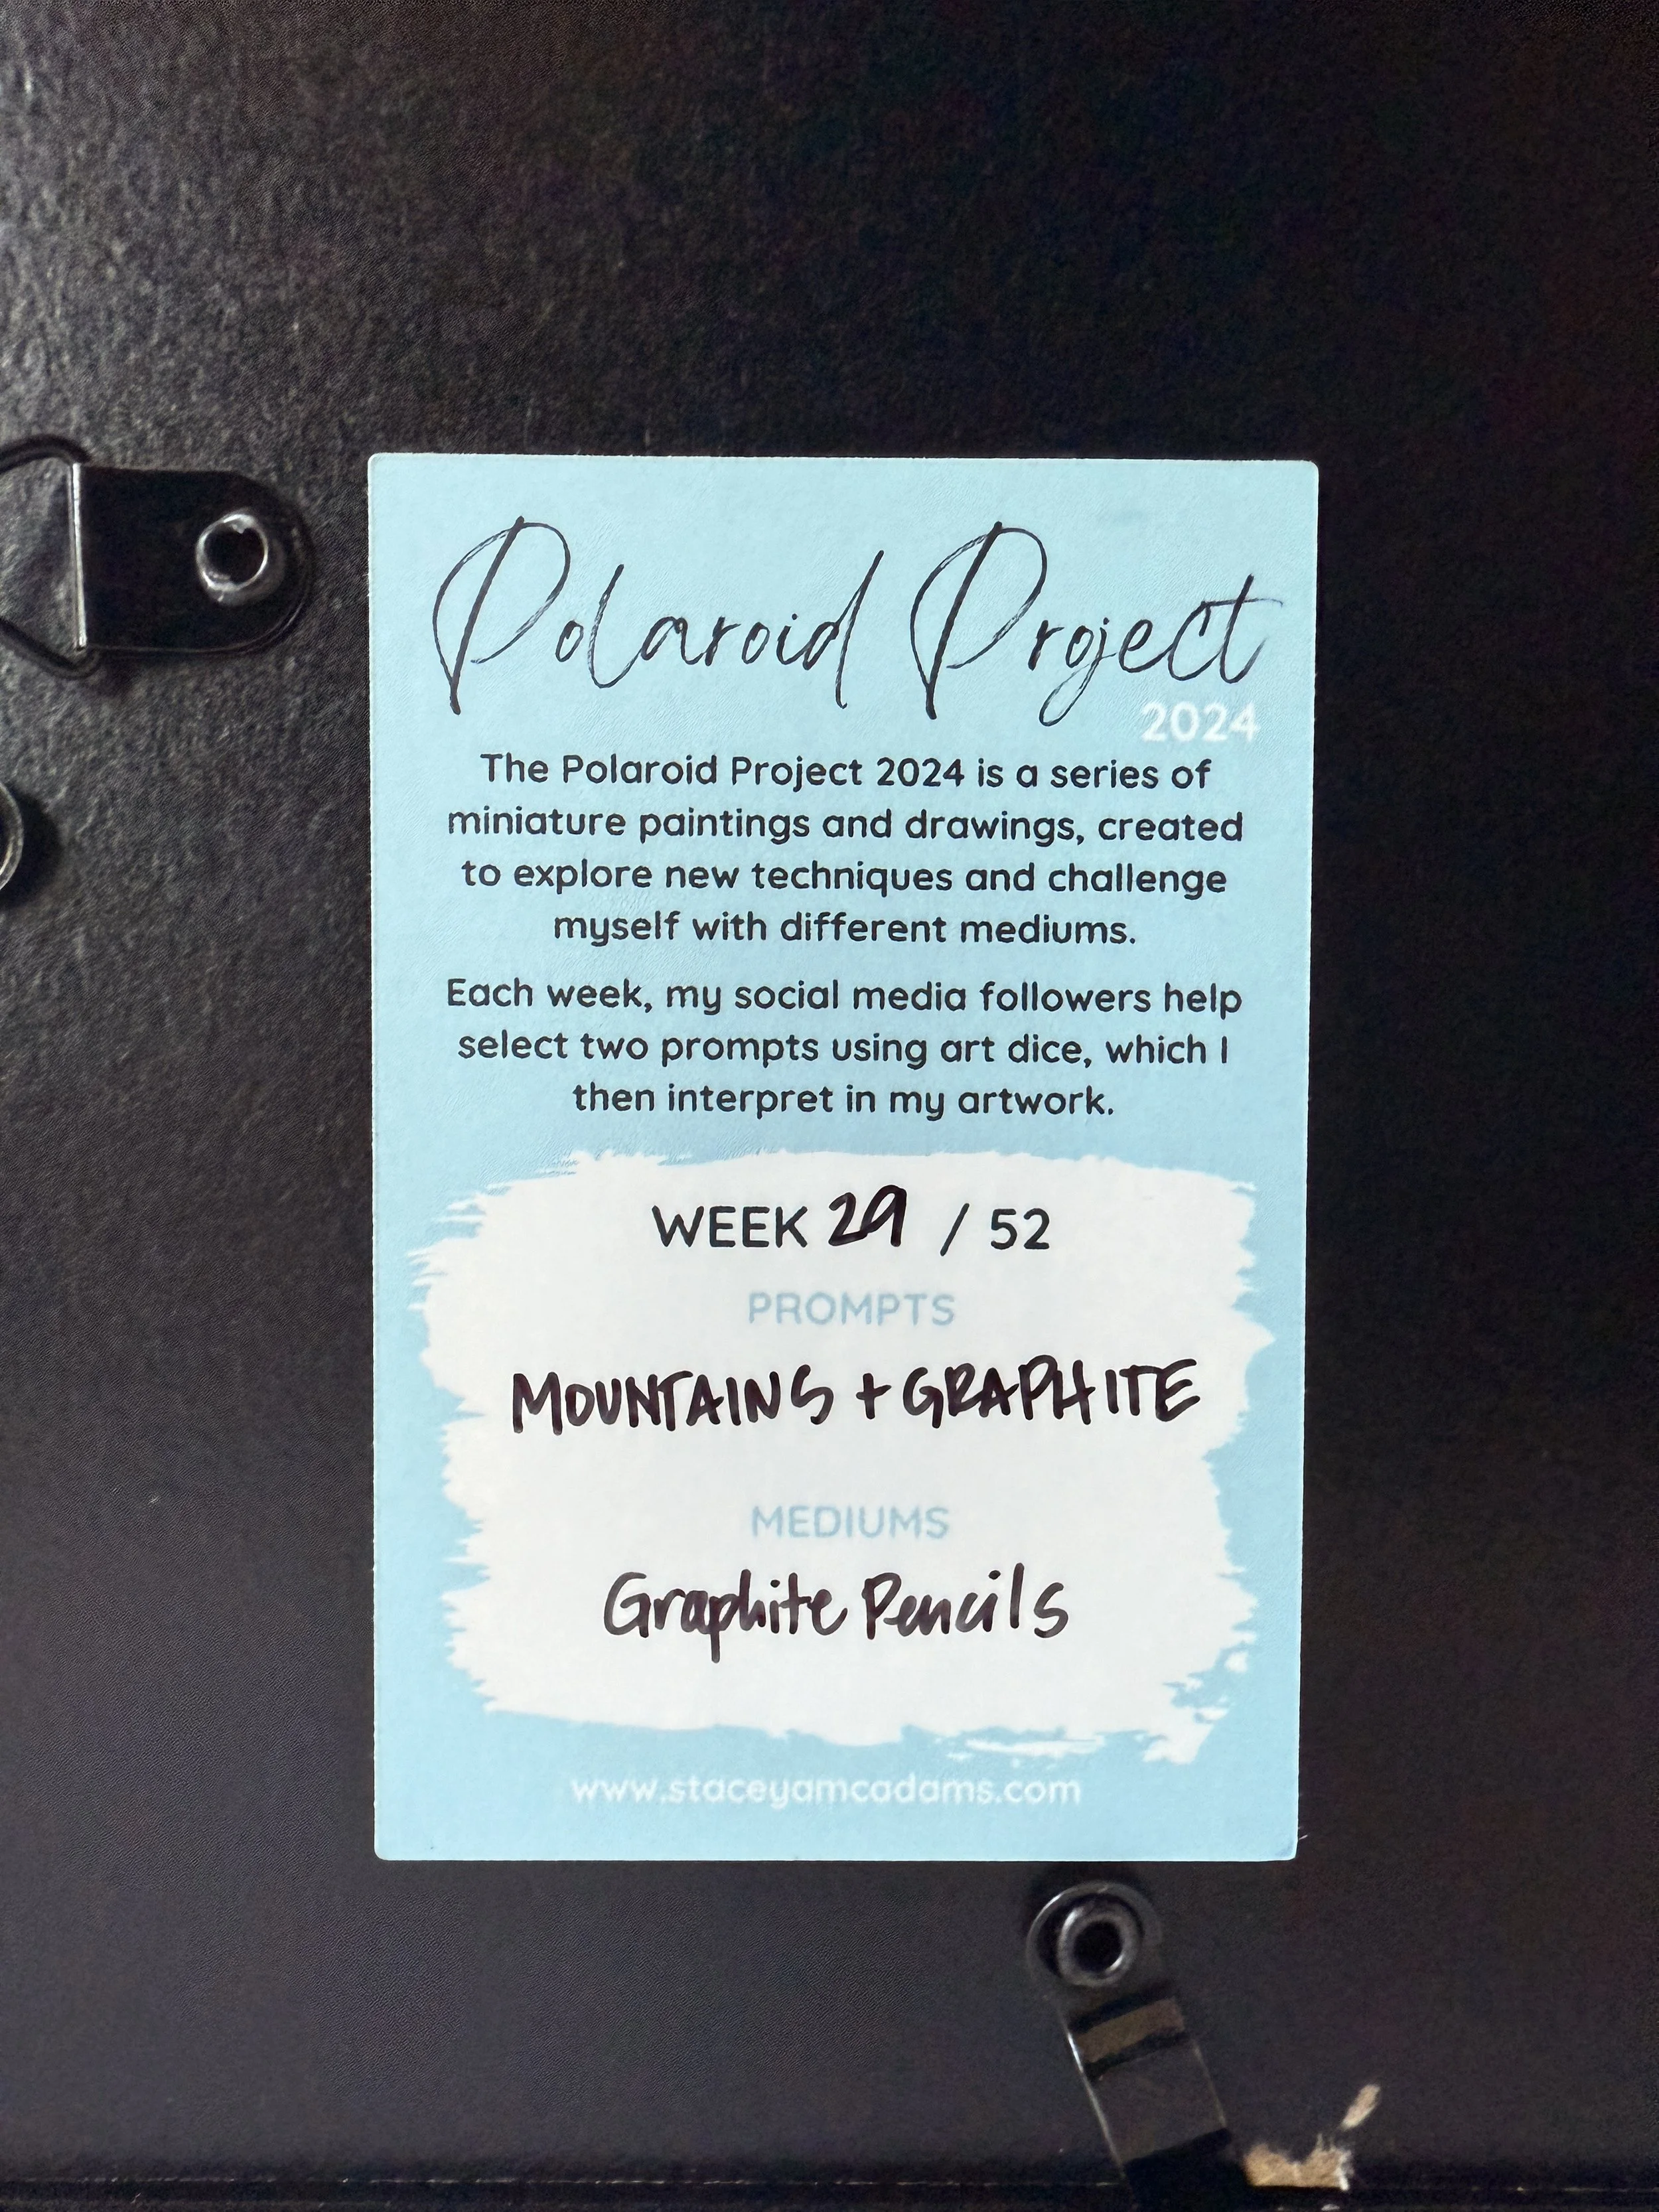 Polaroid Project
2024
The Polaroid Project 2024 is a series of
miniature paintings and drawings, created
to explore new techniques and challenge
myself with different mediums.
Each week, my social media followers help
select two prompts using art dice, which I
then interpret in my artwork.
WEEK 29 / 52
PROMPTS
MOUNTAINS + GRAPHITE
MEDIUMS
Graphite Pencils
www.staceyamcadams.com